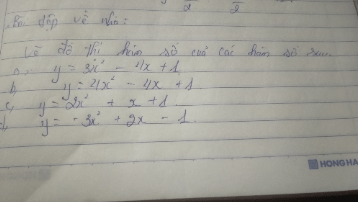 Bài tập về nhà:
Vẽ đồ thị hàm số của các hàm số sau
a, y = 3x² - 4x + 1
b, y = 4x² - 4x + 1
c, y = 2x² + x + 1
d, y = -3x² + 2x - 1
HONG HA